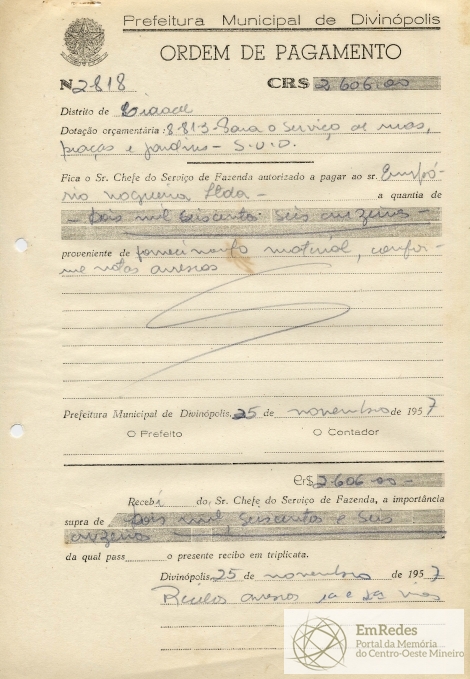 Prefeitura Municipal de Divinópolis
ORDEM DE PAGAMENTO
Nº 2818 CR$ 2606,00
Distrito de Cidade
Dotação orçamentária: 8-81-3-Para o serviço de ruas,
praças e jardins - S.U.D.
Fica o Sr. Chefe do Serviço de Fazenda autorizado a pagar ao sr. Empó-
rio nogueira Ltda - a quantia de
- Dois mil seiscentos seis cruzeiros -
proveniente de fornecimento material, confor-
me notas anexas
Prefeitura Municipal de Divinópolis, 25 de novembro de 1957
O Prefeito O Contador
Cr$ 2.606,00-
Recebi do Sr. Chefe do Serviço de Fazenda, a importância
supra de Dois mil seiscentos e seis
cruzeiros
da qual pass o presente recibo em triplicata.
Divinópolis, 25 de novembro de 1957
Recibos anexos 1a e 2a vias
EmRedes
Portal da Memória
do Centro-Oeste Mineiro